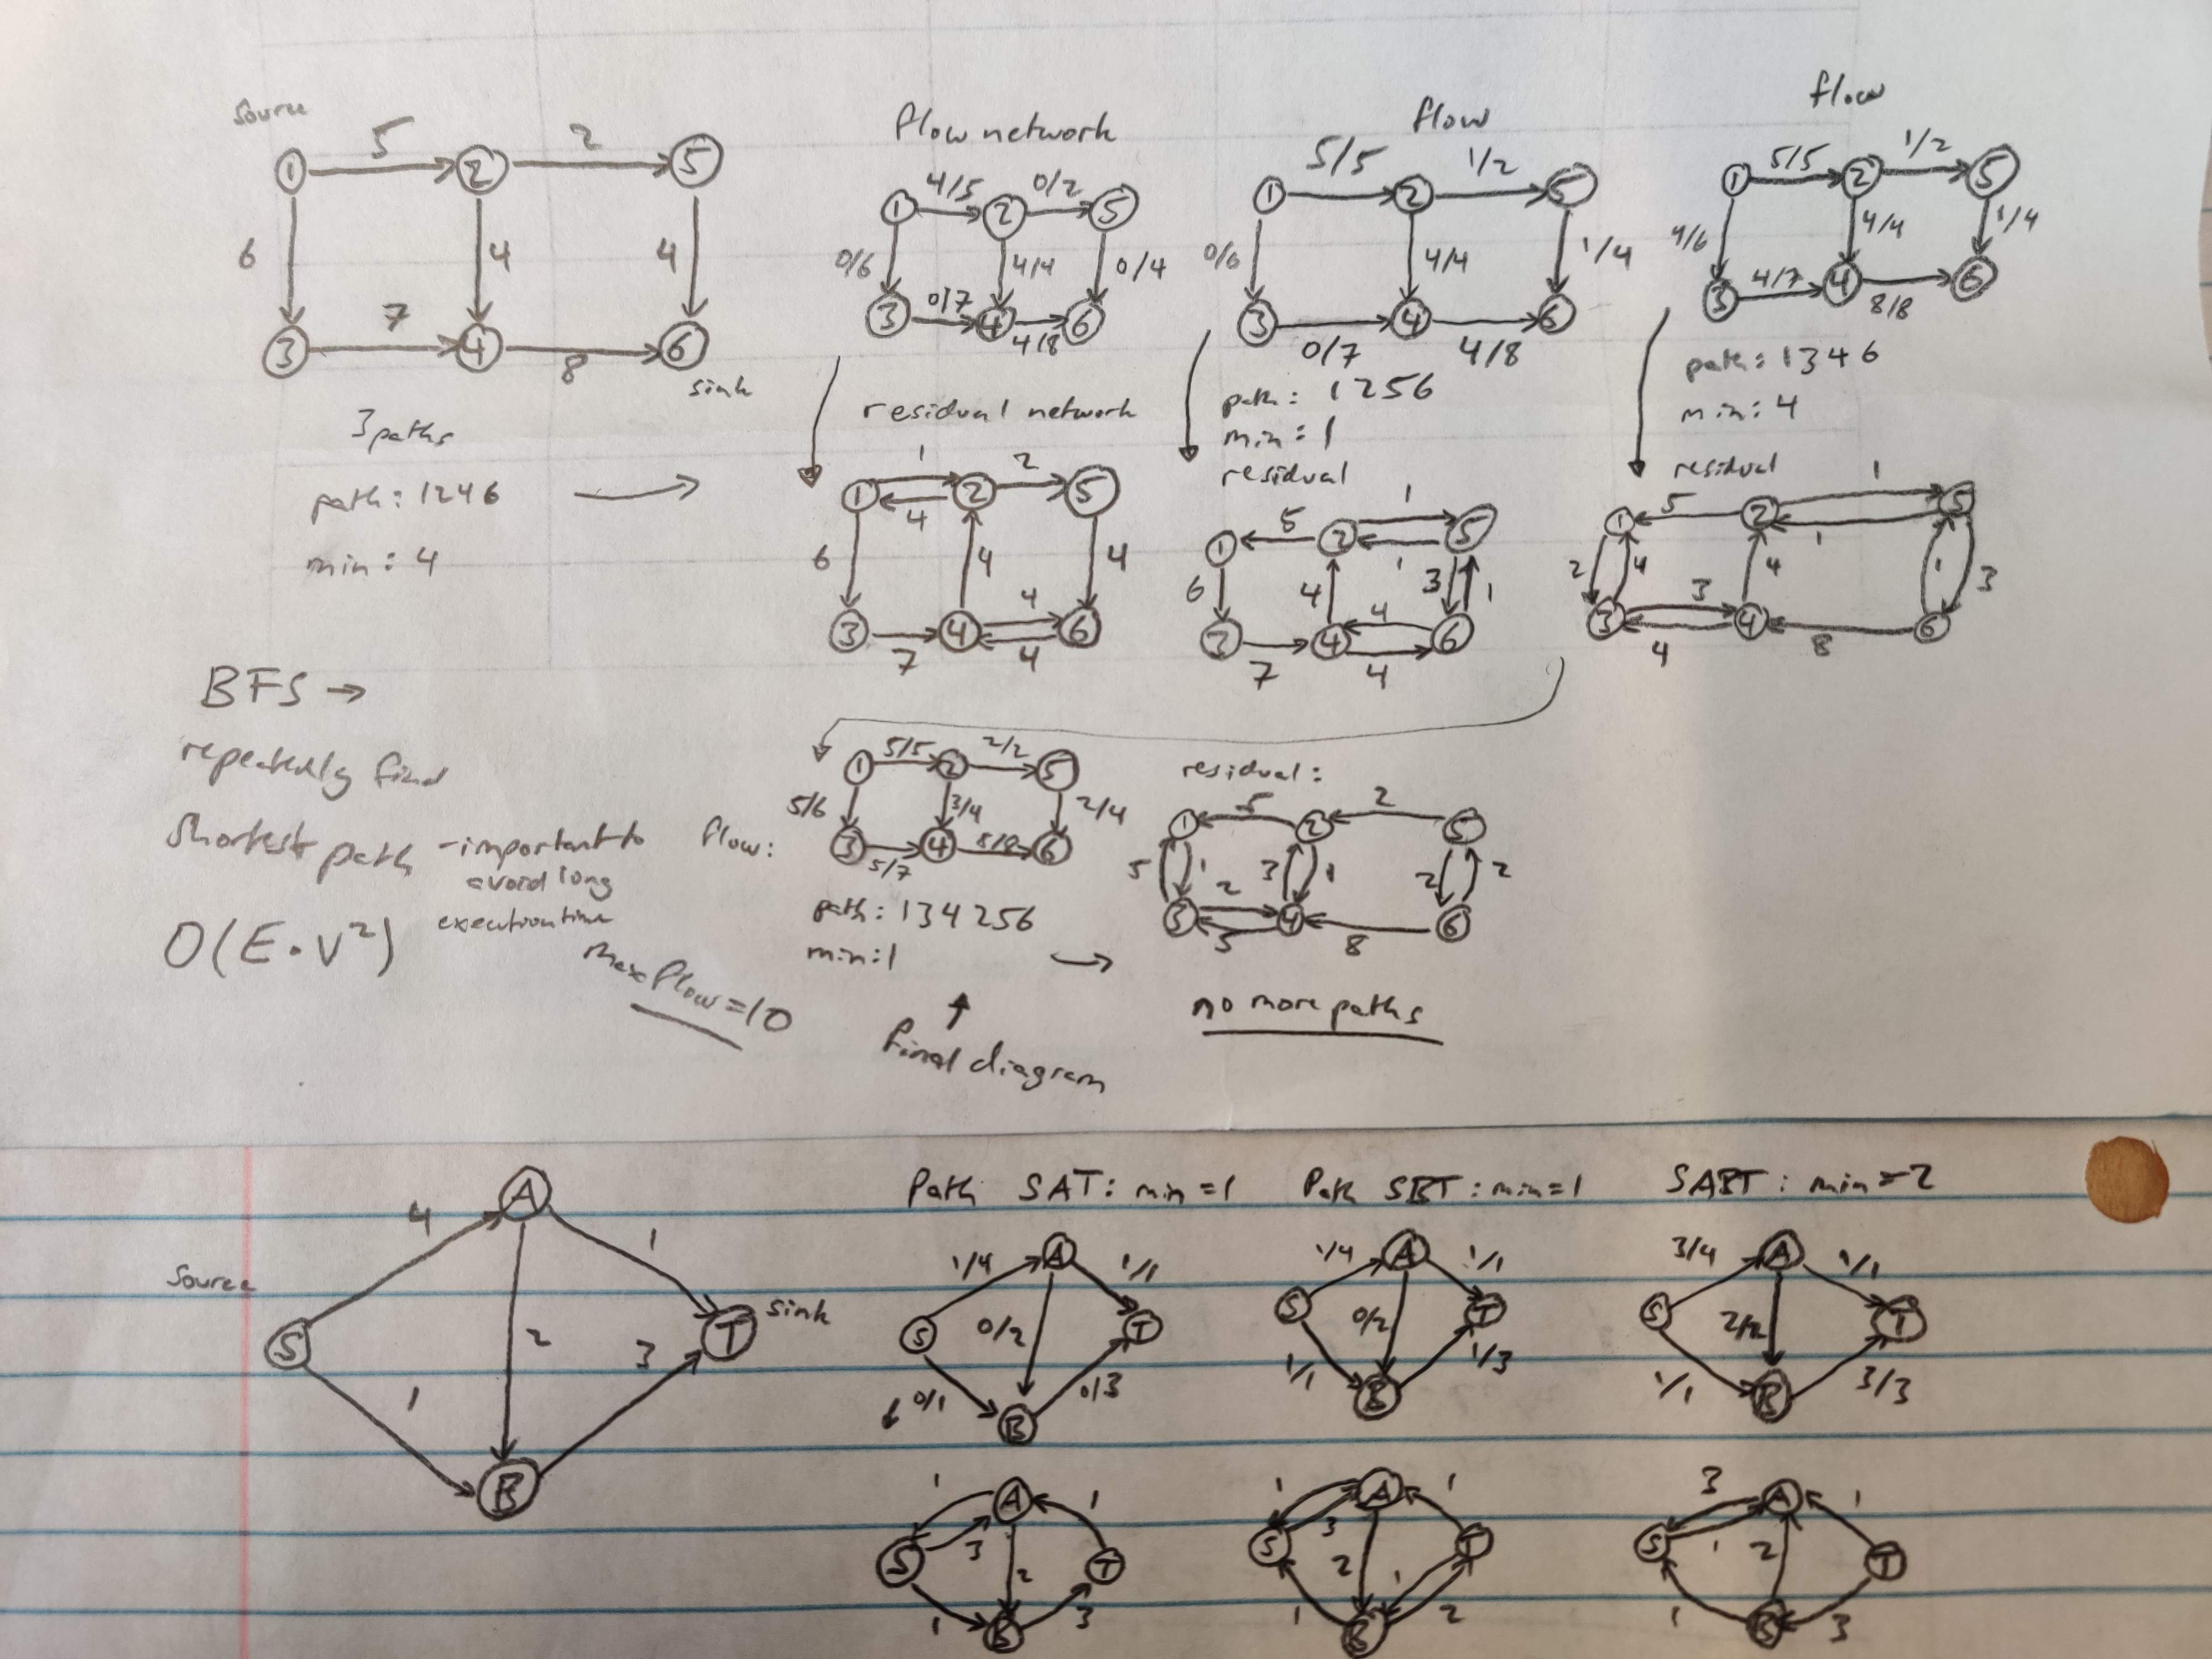 source
5 2
1 2 5
6 4 4
7
3 4 6
8
sink
3 paths
path: 1246
min: 4
flow network
4/5 0/2
1 2 5
0/6 4/4 0/4
0/7
3 4 6
4/8
residual network
1 2
1 2 5
4
6 4 4
4
3 4 6
7 4
flow
5/5 1/2
1 2 5
0/6 4/4 1/4
3 4 6
0/7 4/8
path: 1256
min: 1
residual
1
5
1 2 5
1
6 4 3 1
4
3 4 6
7 4
flow
5/5 1/2
1 2 5
4/6 4/4 1/4
4/7
3 4 6
8/8
path: 1346
min: 4
residual
5 1
1 2 5
1
2 4 4 1 3
3
3 4 6
4 8
BFS →
repeatedly find
shortest path - important to
avoid long
execution time
O(E·V²)
max flow = 10
5/5 2/2
1 2 5
5/6 3/4 2/4
flow:
3 4 6
5/7 8/8
path: 134256
min: 1
final diagram
residual:
5 2
1 2 5
5 1 3 1 2 2
2
3 4 6
5 8
no more paths
A
4 1
source
S T sink
2 3
1
B
Path SAT: min = 1
A
1/4 1/1
S 0/2 T
0/1 0/3
B
1 A 1
S 3 2 T
1 B 3
Path SBT: min = 1
A
1/4 1/1
S 0/2 T
1/1 1/3
B
1 A 1
S 3 T
2 1
1 B 2
SABT: min = 2
3/4 A 1/1
S 2/2 T
1/1 B 3/3
3 A 1
S 1 2 T
1 B 3